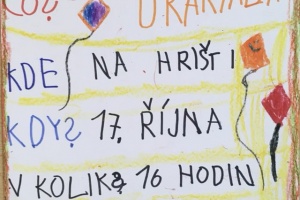 CO? DRAKIÁDA
KDE NA HŘIŠTI
KDY? 17. ŘÍJNA
V KOLIK? 16 HODIN